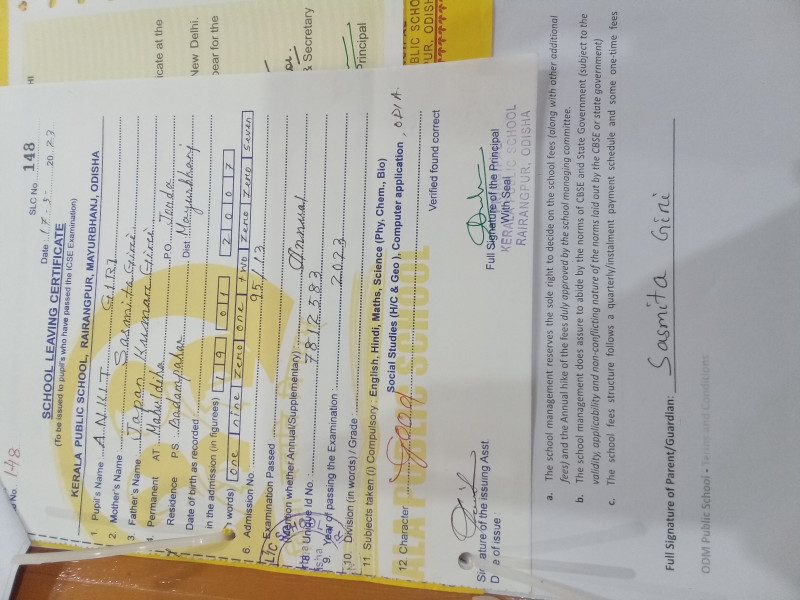 SLC No. 148
Date: 17-5-2023
SCHOOL LEAVING CERTIFICATE
(To be issued to pupil's who have passed the ICSE Examination)
KERALA PUBLIC SCHOOL, RAIRANGPUR, MAYURBHANJ, ODISHA
1. Pupil's Name ANKIT GIRI
2. Mother's Name Sasmita Giri
3. Father's Name Tapan Kumar Giri
4. Permanent AT P.O. Tonda
Residence P.S. Badampahar Dist Mayurbhanj
Date of birth as recorded
in the admission (in figurees) 19 01 2007
words) one nine zero one two zero zero seven
6. Admission No. 95/13
Examination Passed
Mention whether Annual/Supplementary) Annual
8. Unique Id No. 7812583
9. Year of passing the Examination: 2023
10. Division (in words) / Grade :
11. Subjects taken (i) Compulsory : English, Hindi, Maths, Science (Phy, Chem., Bio)
Social Studies (H/C & Geo ), Computer application , ODIA.
12. Character Good
Verified found correct
Full Signature of the Principal
With Seal
KERALA PUBLIC SCHOOL
RAIRANGPUR, ODISHA
ature of the issuing Asst.
e of issue :
icate at the
New Delhi.
pear for the
& Secretary
Principal
BLIC SCHO
UR, ODISH
148
a. The school management reserves the sole right to decide on the school fees (along with other additional
fees) and the Annual hike of the fees duly approved by the school managing committee.
b. The school management does assure to abide by the norms of CBSE and State Government (subject to the
validity, applicability and non-conflicting nature of the norms laid out by the CBSE or state government)
c. The school fees structure follows a quarterly/instalment payment schedule and some one-time fees
Full Signature of Parent/Guardian: Sasmita Giri
ODM Public School - Terms and Conditions